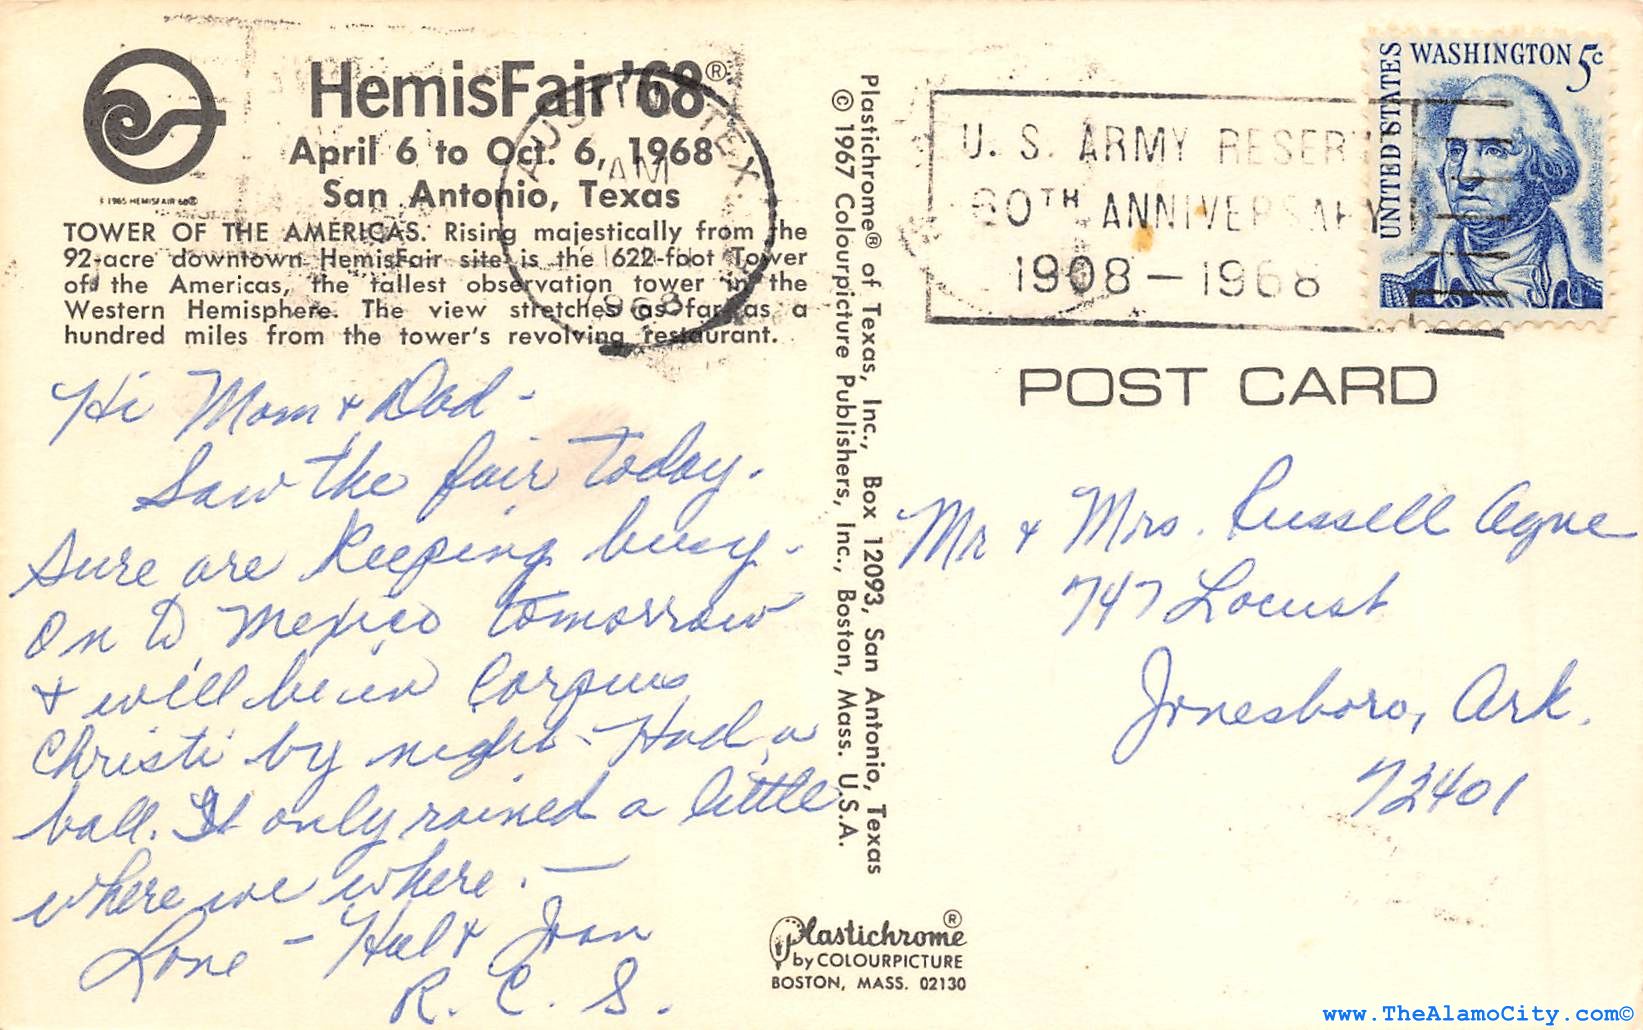 HemisFair '68®
April 6 to Oct. 6, 1968
San Antonio, Texas
© 1965 HEMISFAIR 68®
TOWER OF THE AMERICAS. Rising majestically from the
92-acre downtown HemisFair site is the 622-foot Tower
of the Americas, the tallest observation tower in the
Western Hemisphere. The view stretches as far as a
hundred miles from the tower's revolving restaurant.
AUSTIN, TEX.
AM
1968
Hi Mom & Dad -
Saw the fair today.
Sure are keeping busy.
On to Mexico tomorrow
& will be in Corpus
Christi by night - Had a
ball. It only rained a little
where we where. —
Love - Hal & Joan
R. C. S.
Plastichrome® of Texas, Inc., Box 12093, San Antonio, Texas
© 1967 Colourpicture Publishers, Inc., Boston, Mass. U.S.A.
Plastichrome®
by COLOURPICTURE
BOSTON, MASS. 02130
U. S. ARMY RESERV
60TH ANNIVERSARY
1908 - 1968
UNITED STATES
WASHINGTON 5c
POST CARD
Mr & Mrs. Russell Agne
747 Locust
Jonesboro, Ark.
72401
www.TheAlamoCity.com©